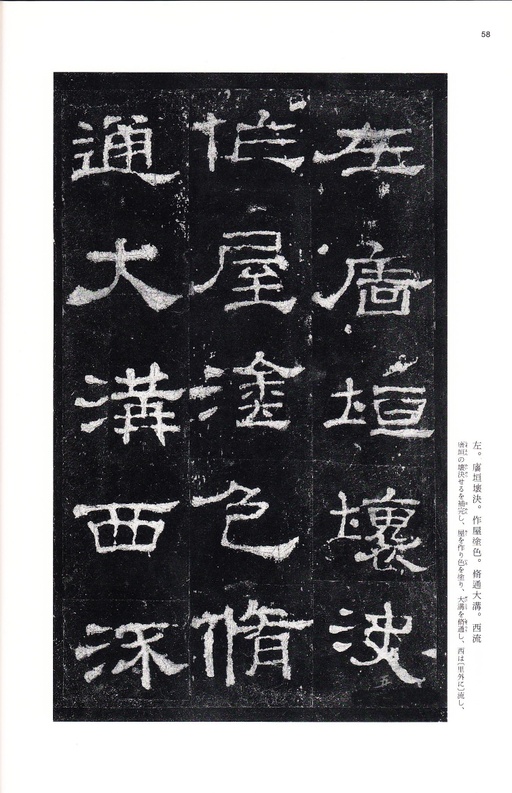 58
左廧垣壊決
作屋塗色脩
通大溝西流
五
左。廧垣壊決。作屋塗色。脩通大溝。西流
廧垣の壊決せるを補完し、屋を作り色を塗り、大溝を脩通し、西は〔里外に〕流し、